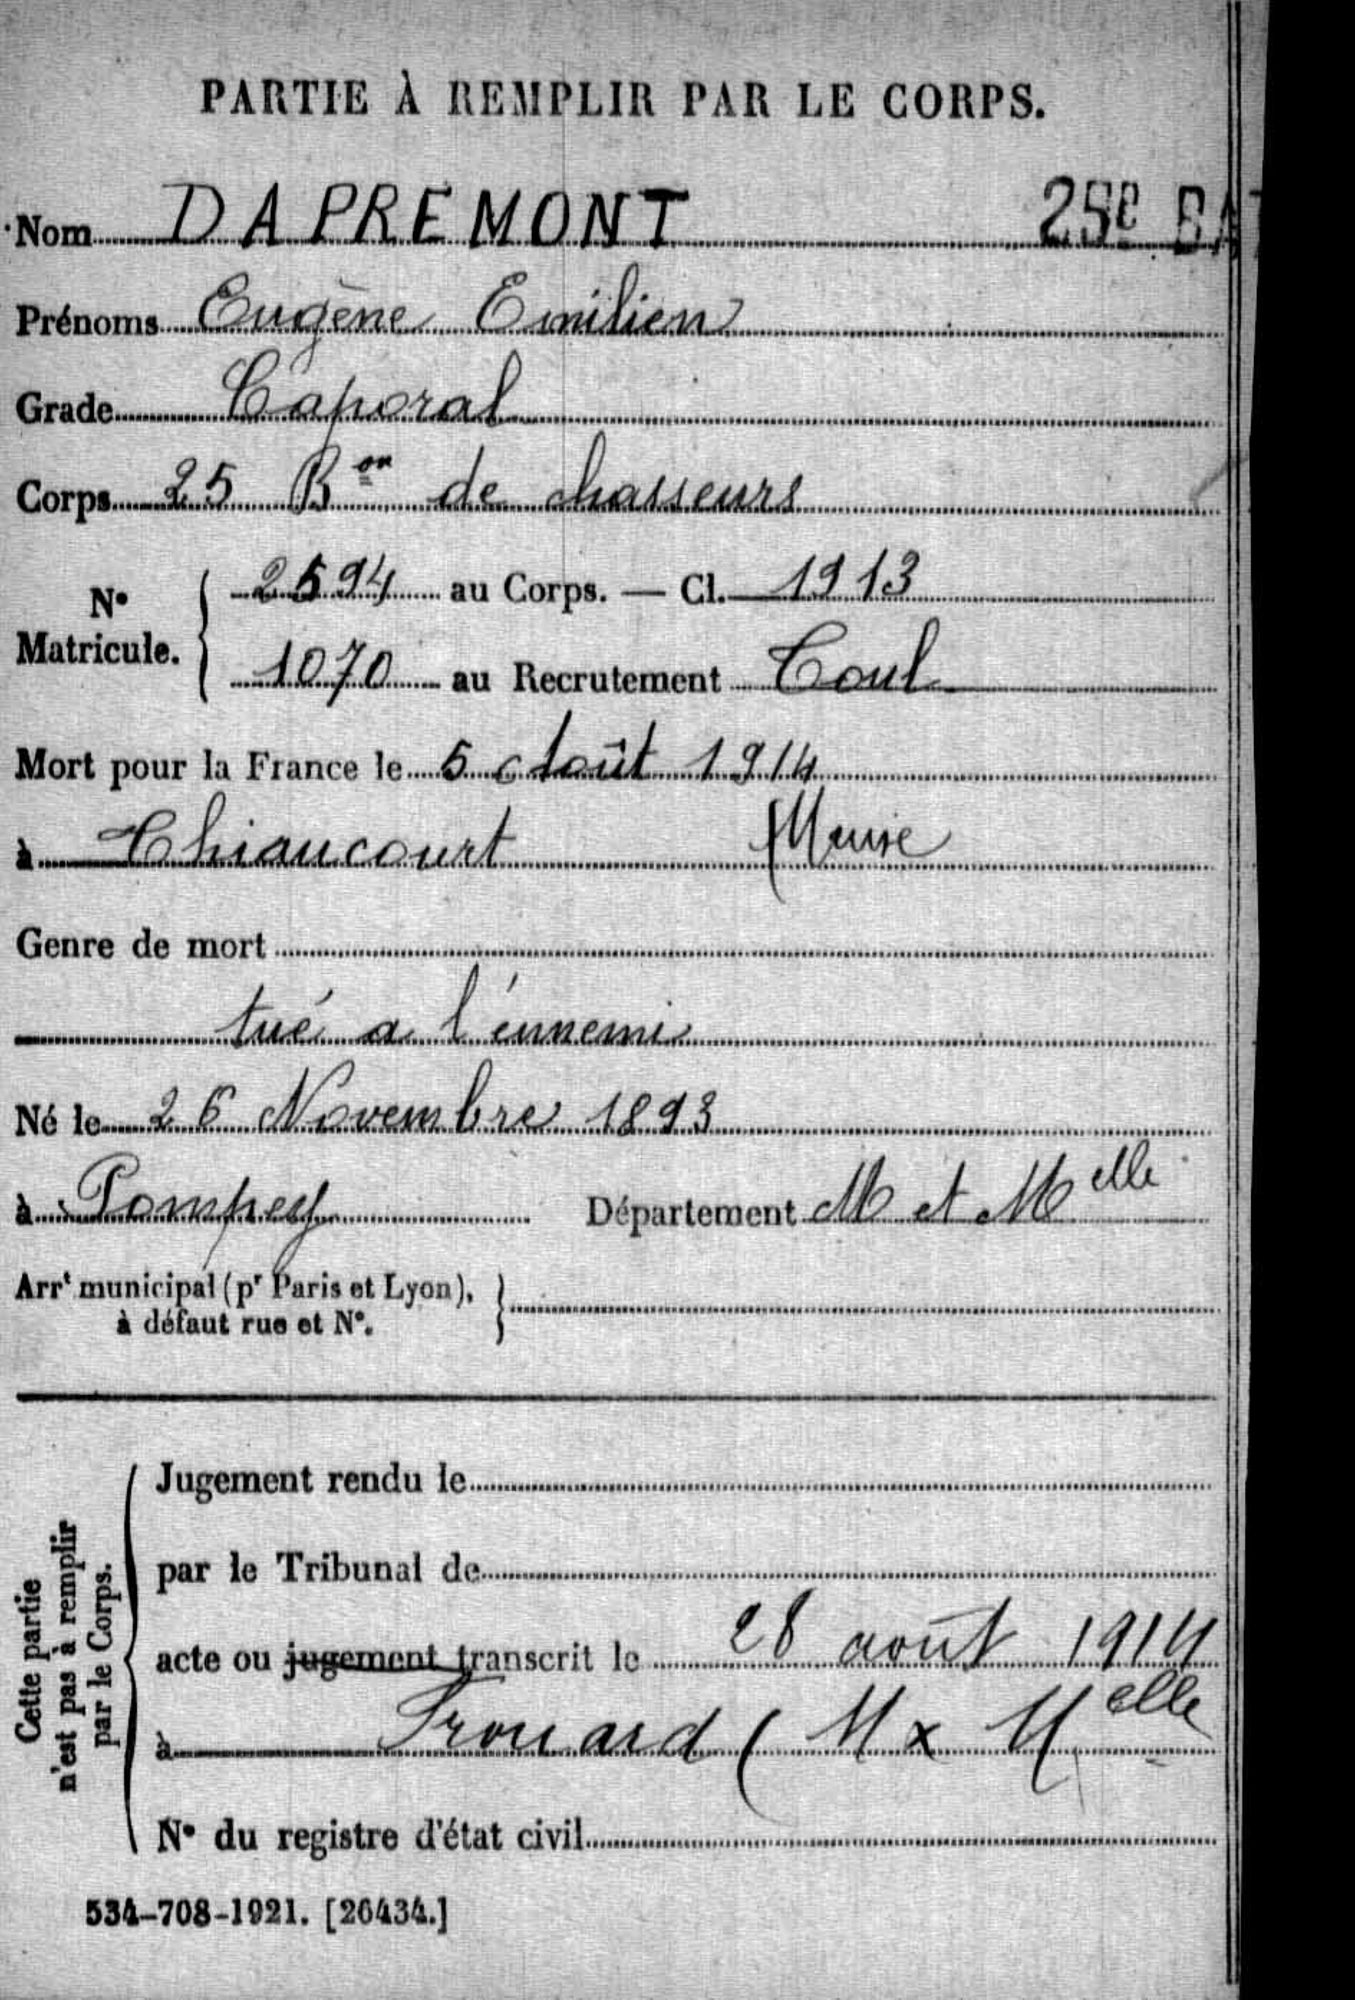 PARTIE À REMPLIR PAR LE CORPS.
Nom DAPREMONT 25e BAT
Prénoms Eugène Emilien
Grade Caporal
Corps 25 Bon de chasseurs
No Matricule. 2594 au Corps. — Cl. 1913
1070 au Recrutement Toul
Mort pour la France le 5 Août 1914
à Chiaucourt (Meuse
Genre de mort
tué a l'énnemi
Né le 26 Novembre 1893
à Pompey Département M et Melle
Arrt municipal (pr Paris et Lyon),
à défaut rue et No.
Cette partie
n'est pas à remplir
par le Corps.
Jugement rendu le
par le Tribunal de
acte ou jugement transcrit le 28 août 1914
à Frouard (M x Melle
No du registre d'état civil
534-708-1921. [26434.]